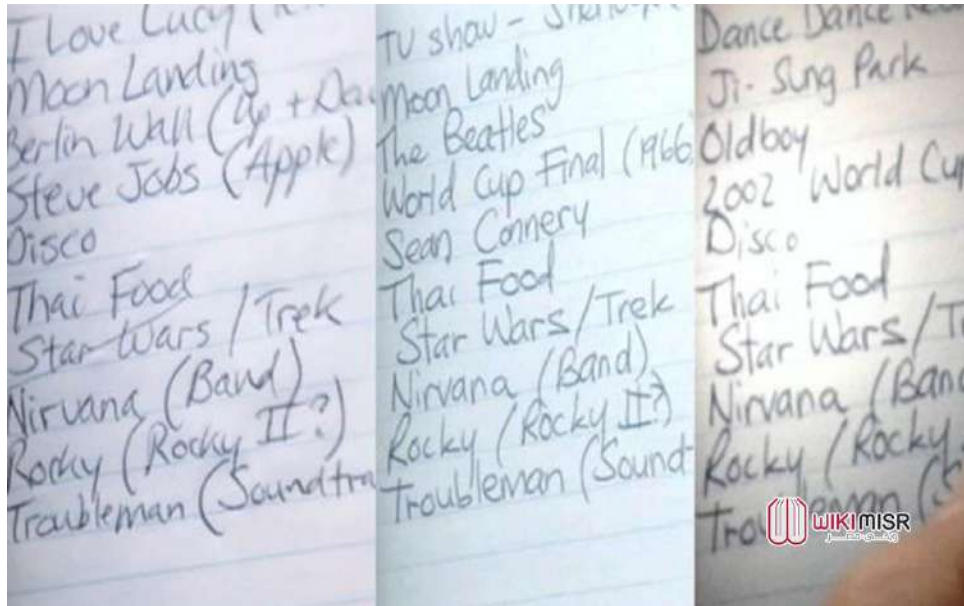 I Love Lucy
Moon Landing
Berlin Wall (Up +
Steve Jobs (Apple)
Disco
Thai Food
Star Wars / Trek
Nirvana (Band)
Rocky (Rocky II?)
Troubleman (Soundtra
TV show -
Moon Landing
The Beatles
World Cup Final (1966
Sean Connery
Thai Food
Star Wars/Trek
Nirvana (Band)
Rocky (Rocky II?)
Troubleman (Sound-
Dance Dance
Ji-Sung Park
Oldboy
2002 World Cup
Disco
Thai Food
Star Wars/T
Nirvana (Band
Rocky (Rocky
Trou eman (S
WIKIMISR
ويكي مصر